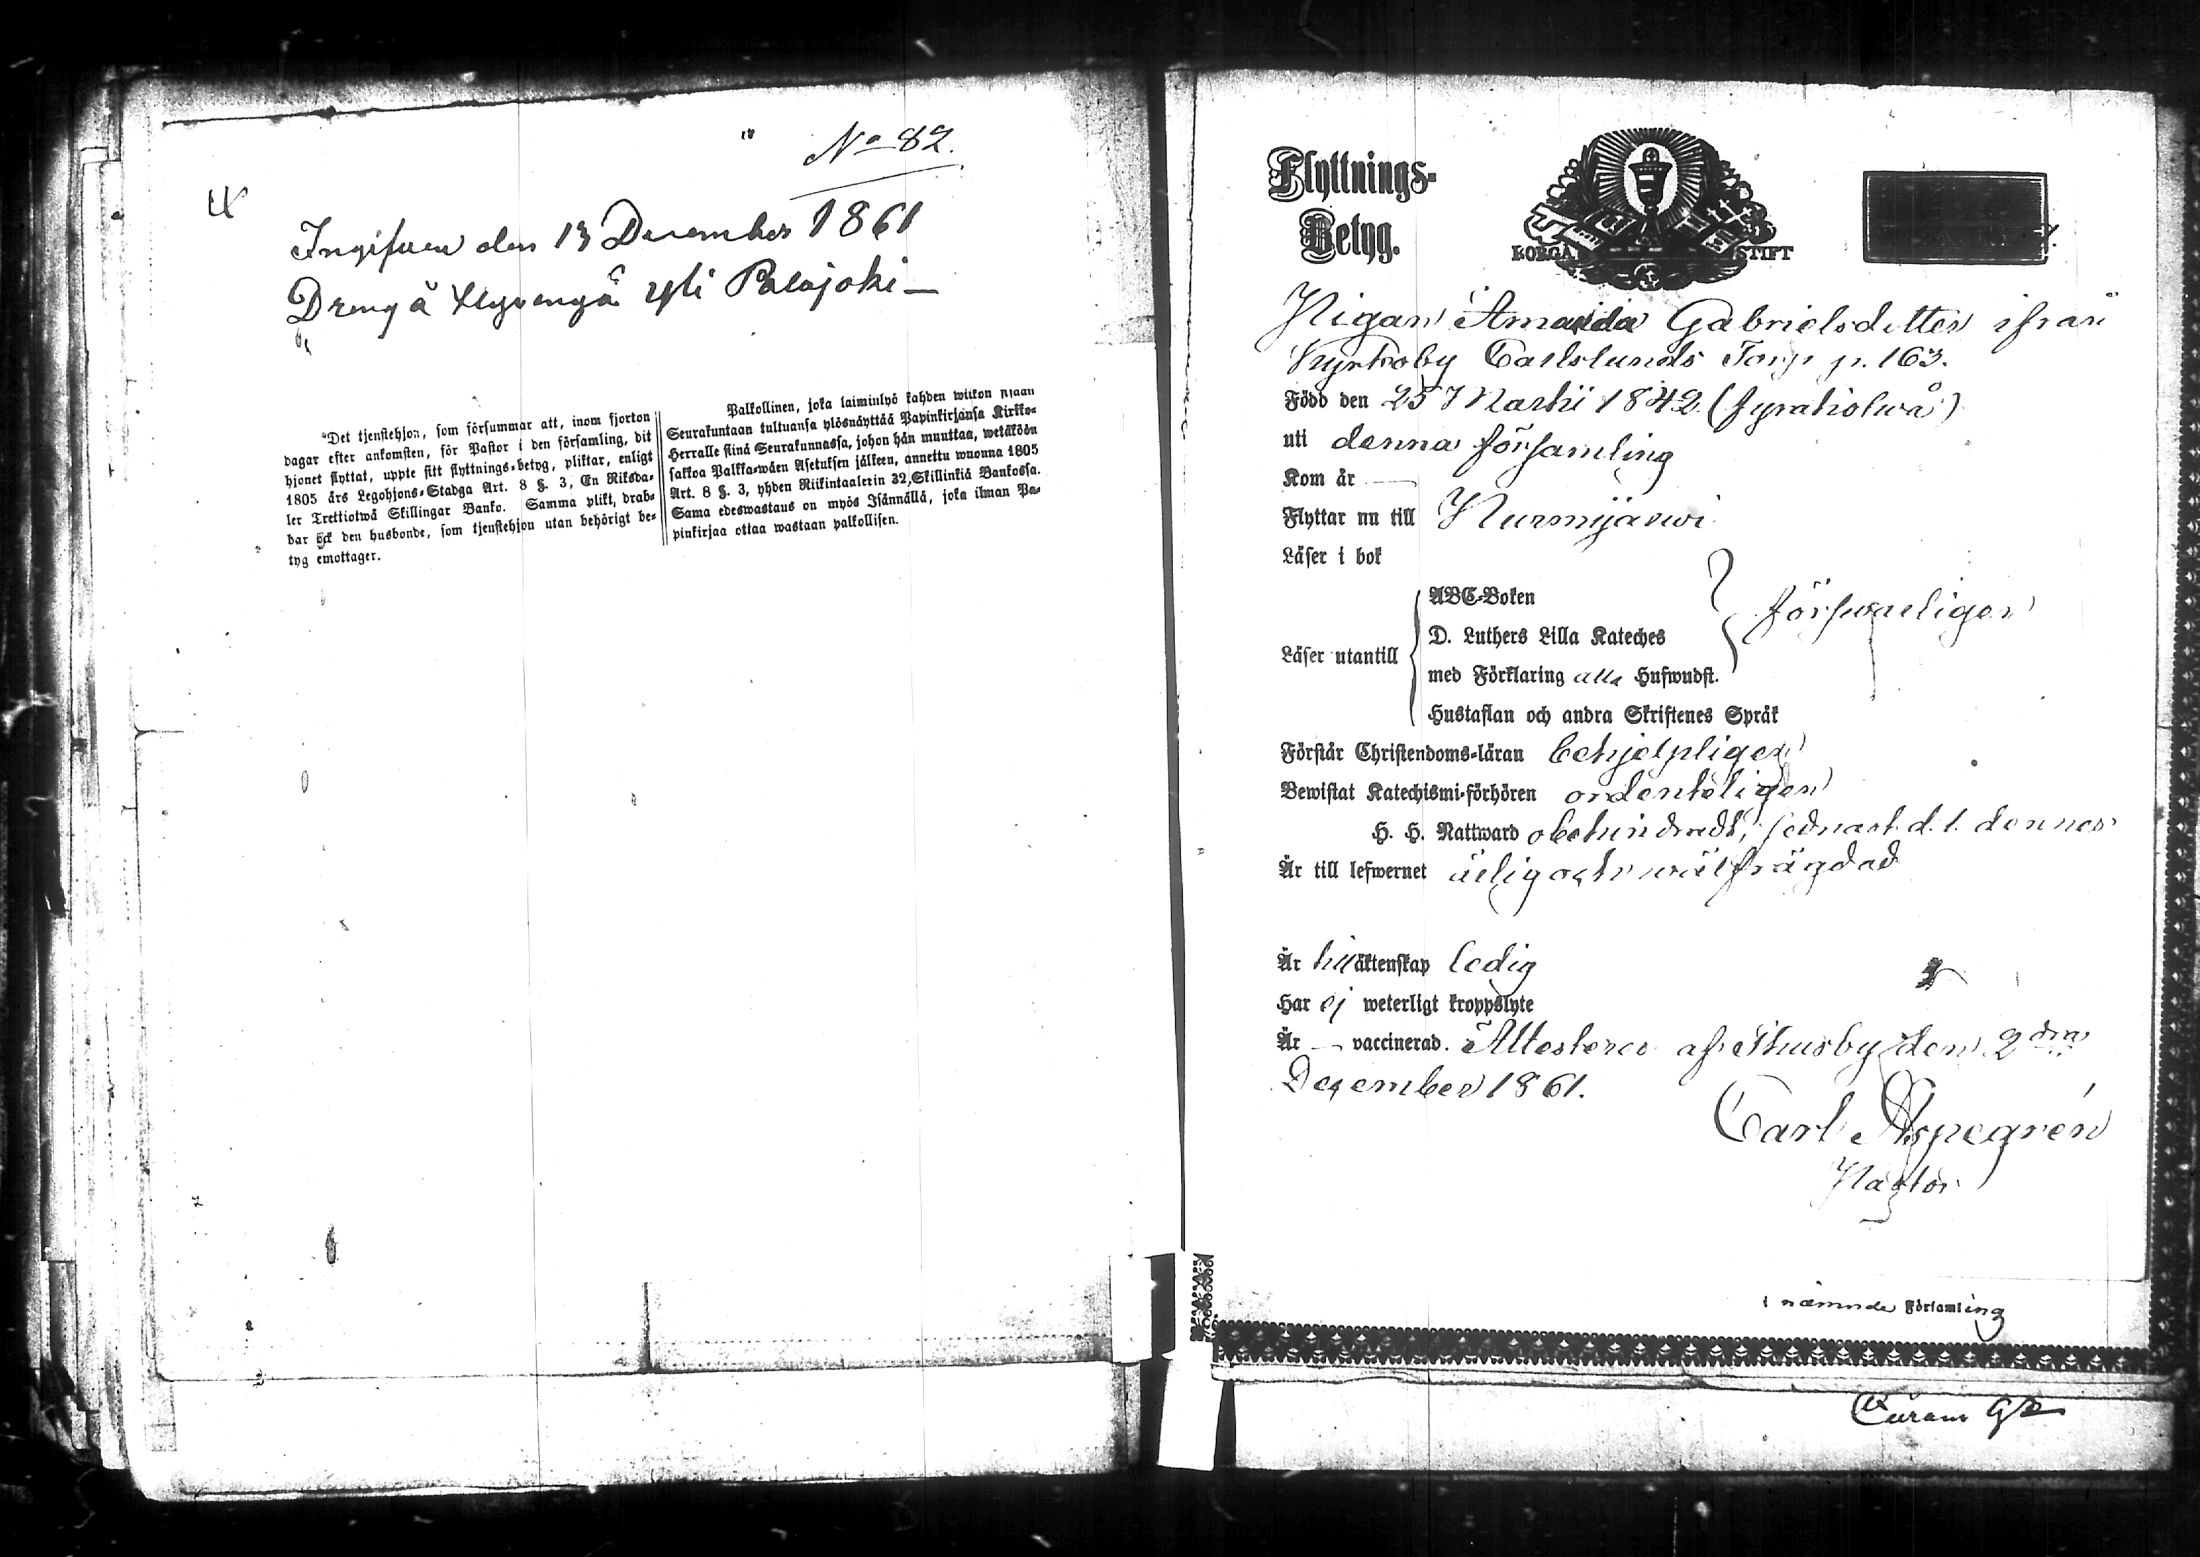 No 82.
Ingifven den 13 December 1861
Dreng å Hyvengå yli Palojoki —
*Det tjenstehjon, som försummar att, inom fjorton
dagar efter ankomsten, för Pastor i den församling, dit
hjonet flyttat, uppte sitt flyttnings-betyg, pliktar, enligt
1805 års Legohjons-Stadga Art. 8 §. 3, En Riksda-
ler Trettiotwå Skillingar Banko. Samma plikt, drab-
bar ock den husbonde, som tjenstehjon utan behörigt be-
tyg emottager.
Palkollinen, joka laiminlyö kahden wiikon sisään
Seurakuntaan tultuansa ylösnäyttää Papinkirjansa Kirkko-
Herralle siinä Seurakunnassa, johon hän muuttaa, wetäköön
sakkoa Palkka-wäen Asetuksen jälkeen, annettu wuonna 1805
Art. 8 §. 3, yhden Riikintaalerin 32, Skillinkiä Bankossa.
Sama edeswastaus on myös Isännällä, joka ilman Pa-
pinkirjaa ottaa wastaan palkollisen.
Flyttnings-
Betyg.
BORGÅ STIFT
Pigan Amanda Gabrielsdotter ifrån
Kyrkoby Carlslunds Torp p. 163.
Född den 25 Martii 1842 (fyratiotwå)
uti denna församling
Kom år —
Flyttar nu till Nurmijärwi
Läser i bok
ABC-Boken
D. Luthers Lilla Kateches
försvarligen
Läser utantill
med Förklaring alla Hufwudst.
Hustaflan och andra Skriftenes Språk
Förstår Christendoms-läran behjelpligen
Bewistat Katechismi-förhören ordenteligen
H. H. Nattward obehindradt, sednast d. 1. dennes
Är till lefwernet ärlig och wälfrägdad
Är till äktenskap ledig
Har ej weterligt kroppslyte
Är — vaccinerad. Attesteras af Thusby den 2dra
December 1861.
Carl Aspegrén
Pastor
i nämnde Församling